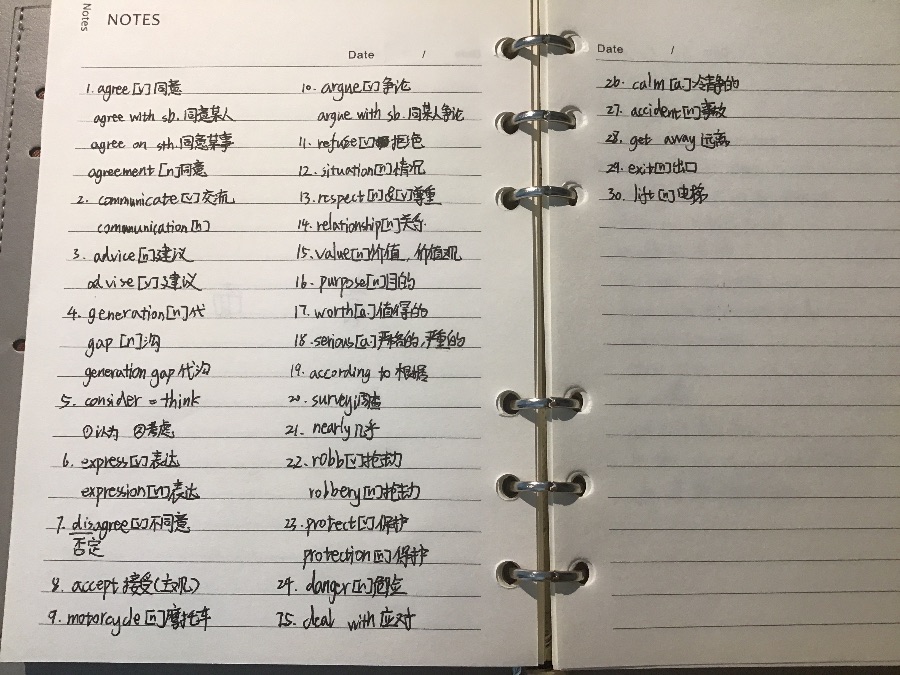 Notes
NOTES
Date /
1. agree [v] 同意
agree with sb. 同意某人
agree on sth. 同意某事
agreement [n] 同意
2. communicate [v] 交流
communication [n]
3. advice [n] 建议
advise [v] 建议
4. generation [n] 代
gap [n] 沟
generation gap 代沟
5. consider = think
①认为 ②考虑
6. express [v] 表达
expression [n] 表达
7. disagree [v] 不同意
否定
8. accept 接受(主观)
9. motorcycle [n] 摩托车
10. argue [v] 争论
argue with sb. 同某人争论
11. refuse [v] 拒绝
12. situation [n] 情况
13. respect [n] & [v] 尊重
14. relationship [n] 关系
15. value [n] 价值, 价值观
16. purpose [n] 目的
17. worth [a.] 值得的
18. serious [a.] 严格的, 严重的
19. according to 根据
20. survey 调查
21. nearly 几乎
22. robb [v] 抢劫
robbery [n] 抢劫
23. protect [v] 保护
protection [n] 保护
24. danger [n] 危险
25. deal with 应对
Date /
26. calm [a.] 冷静的
27. accident [n] 事故
28. get away 远离
29. exit [n] 出口
30. lift [n] 电梯